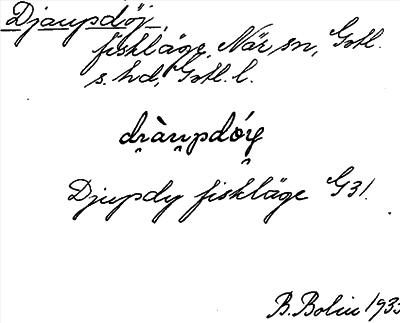 Djaupdöj,
fiskläge, När sn, Gotl.
s. hd, Gotl. l.
Djupdy fiskläge G31.
B. Bolin 1933